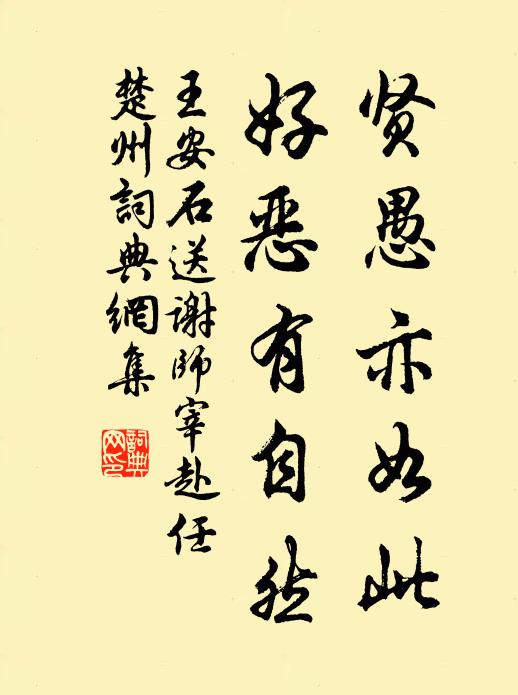 贤愚亦如此
好恶有自然
王安石送谢师宰赴任
楚州詞典網集
詞典網印